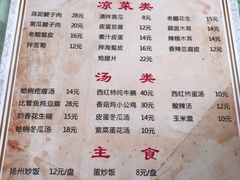 凉菜类
蒜泥腱子肉 28元 清拌黄瓜 8元 老醋花生 15元
黄瓜腱子肉 20元 皮蛋豆腐 12元 蒜泥木耳 14元
老醋蜇皮 15元 姜汁皮蛋 12元 辣根木耳 14元
拌苦菊 12元 拌海蜇皮 16元 香辣豆腐皮 12元
炝腰片 22元
汤类
蛤蜊疙瘩汤 14元 西红柿炖牛腩 40元 西红柿蛋汤 10元
比管鱼炖豆腐 28元 香菇炖小公鸡 30元 酸辣汤 12元
奶香花生糊 15元 皮蛋冬瓜汤 14元 玉米羹 10元
蛤蜊冬瓜汤 18元 紫菜蛋花汤 10元
主食
扬州炒饭 12元/盘 蛋炒饭 8元/盘